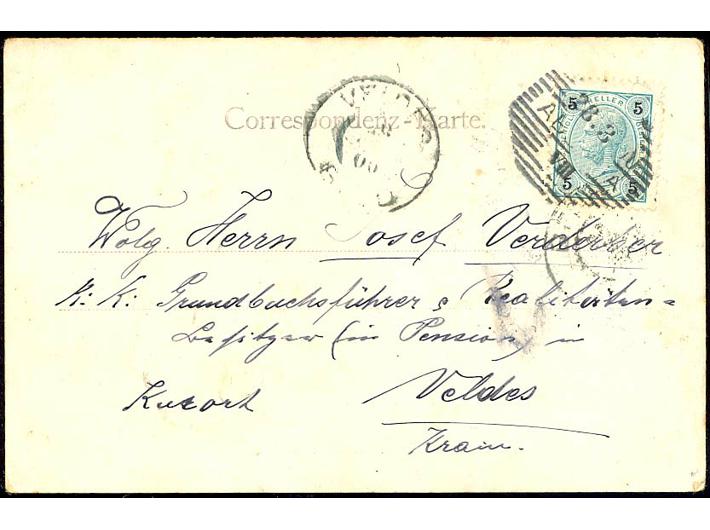 Correspondenz-Karte.
5 HELLER 5
5 5
28.3
VIII
VELDES
Wolg. Herrn Josef Verderber
K: K: Grundbuchsführer & Realitäten=
Besitzer (in Pension) in
Kurort Veldes
Krain.